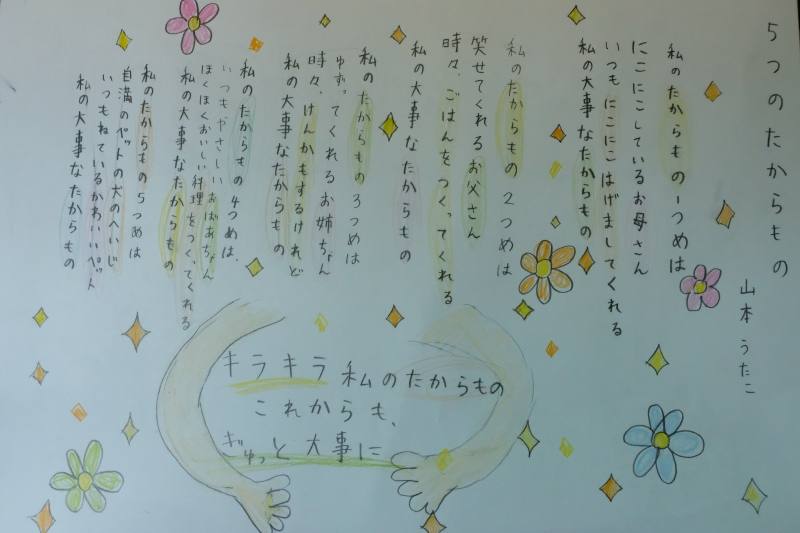 5つのたからもの
山本うたこ
私のたからもの1つめは
にこにこしているお母さん
いつもにこにこはげましてくれる
私の大事なたからもの
私のたからもの2つめは
笑せてくれるお父さん
時々、ごはんをつくってくれる
私の大事なたからもの
私のたからもの3つめは
ゆずってくれるお姉ちゃん
時々、けんかもするけれど
私の大事なたからもの
私のたからもの4つめは、
いつもやさしいおばあちゃん
ほくほくおいしい料理をつくってくれる
私の大事なたからもの
私のたからもの5つめは
自満のペットの犬のへいじ
いつもねているかわいいペット
私の大事なたからもの
キラキラ私のたからもの
これからも、
ぎゅっと大事に